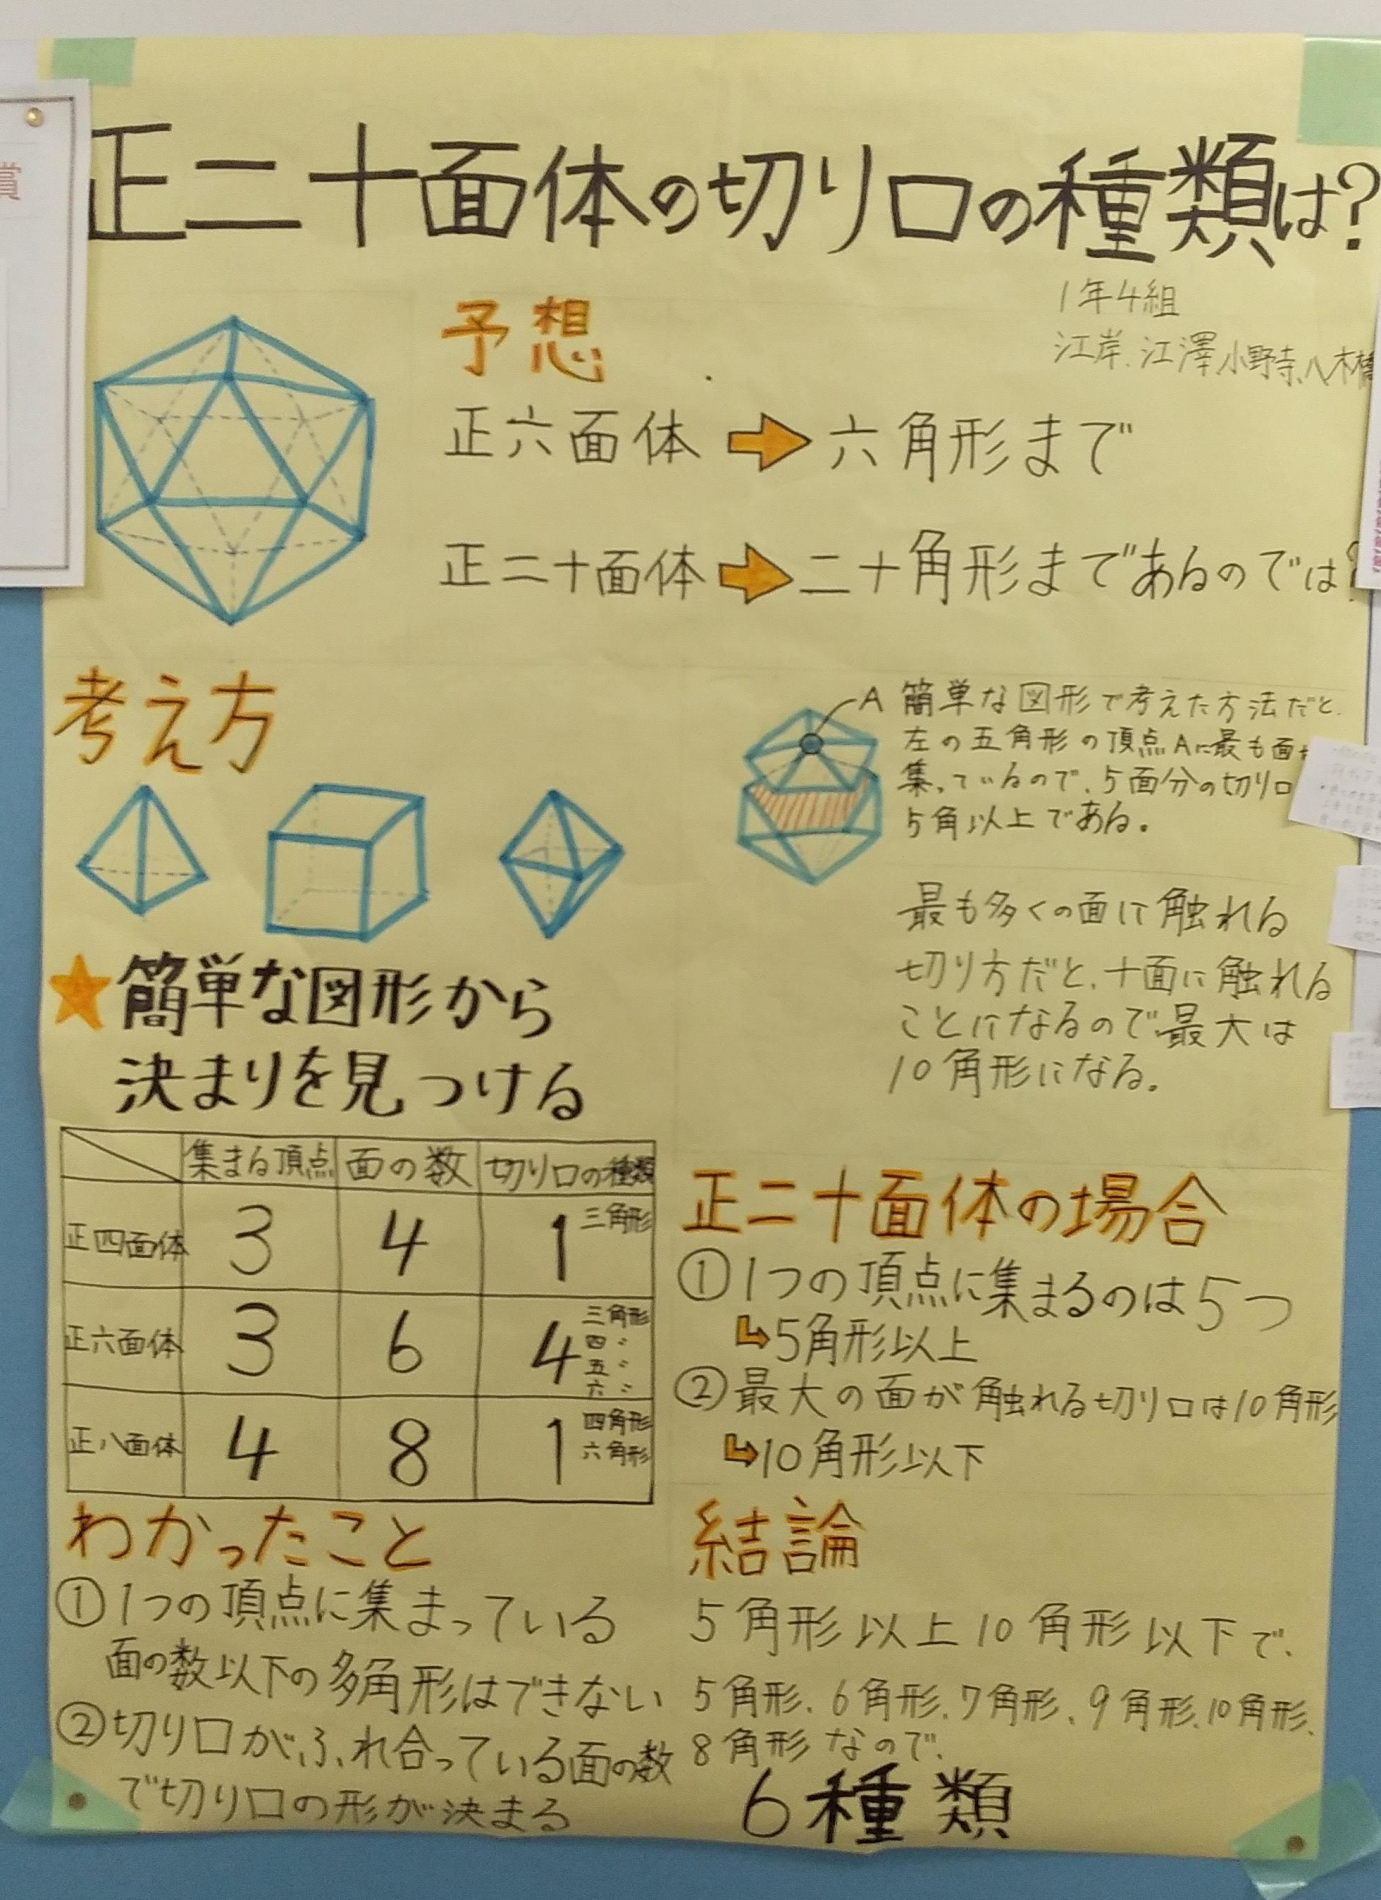 賞
正二十面体の切り口の種類は?
1年4組
江岸、江澤、小野寺、八木橋
予想
正六面体 ➡ 六角形まで
正二十面体 ➡ 二十角形まであるのでは?
考え方
★簡単な図形から
決まりを見つける
A 簡単な図形で考えた方法だと、
左の五角形の頂点Aに最も面
集っているので、5面分の切り口
5角以上である。
最も多くの面に触れる
切り方だと、十面に触れる
ことになるので最大は
10角形になる。
集まる頂点 面の数 切り口の種類
正四面体 3 4 1 三角形
正六面体 3 6 4 三角形 四〃 五〃 六〃
正八面体 4 8 1 四角形 六角形
わかったこと
①1つの頂点に集まっている
面の数以下の多角形はできない
②切り口がふれ合っている面の数
で切り口の形が決まる
正二十面体の場合
①1つの頂点に集まるのは5つ
↳5角形以上
②最大の面が触れる切り口は10角形
↳10角形以下
結論
5角形以上10角形以下で、
5角形、6角形、7角形、9角形、10角形、
8角形なので、
6種類